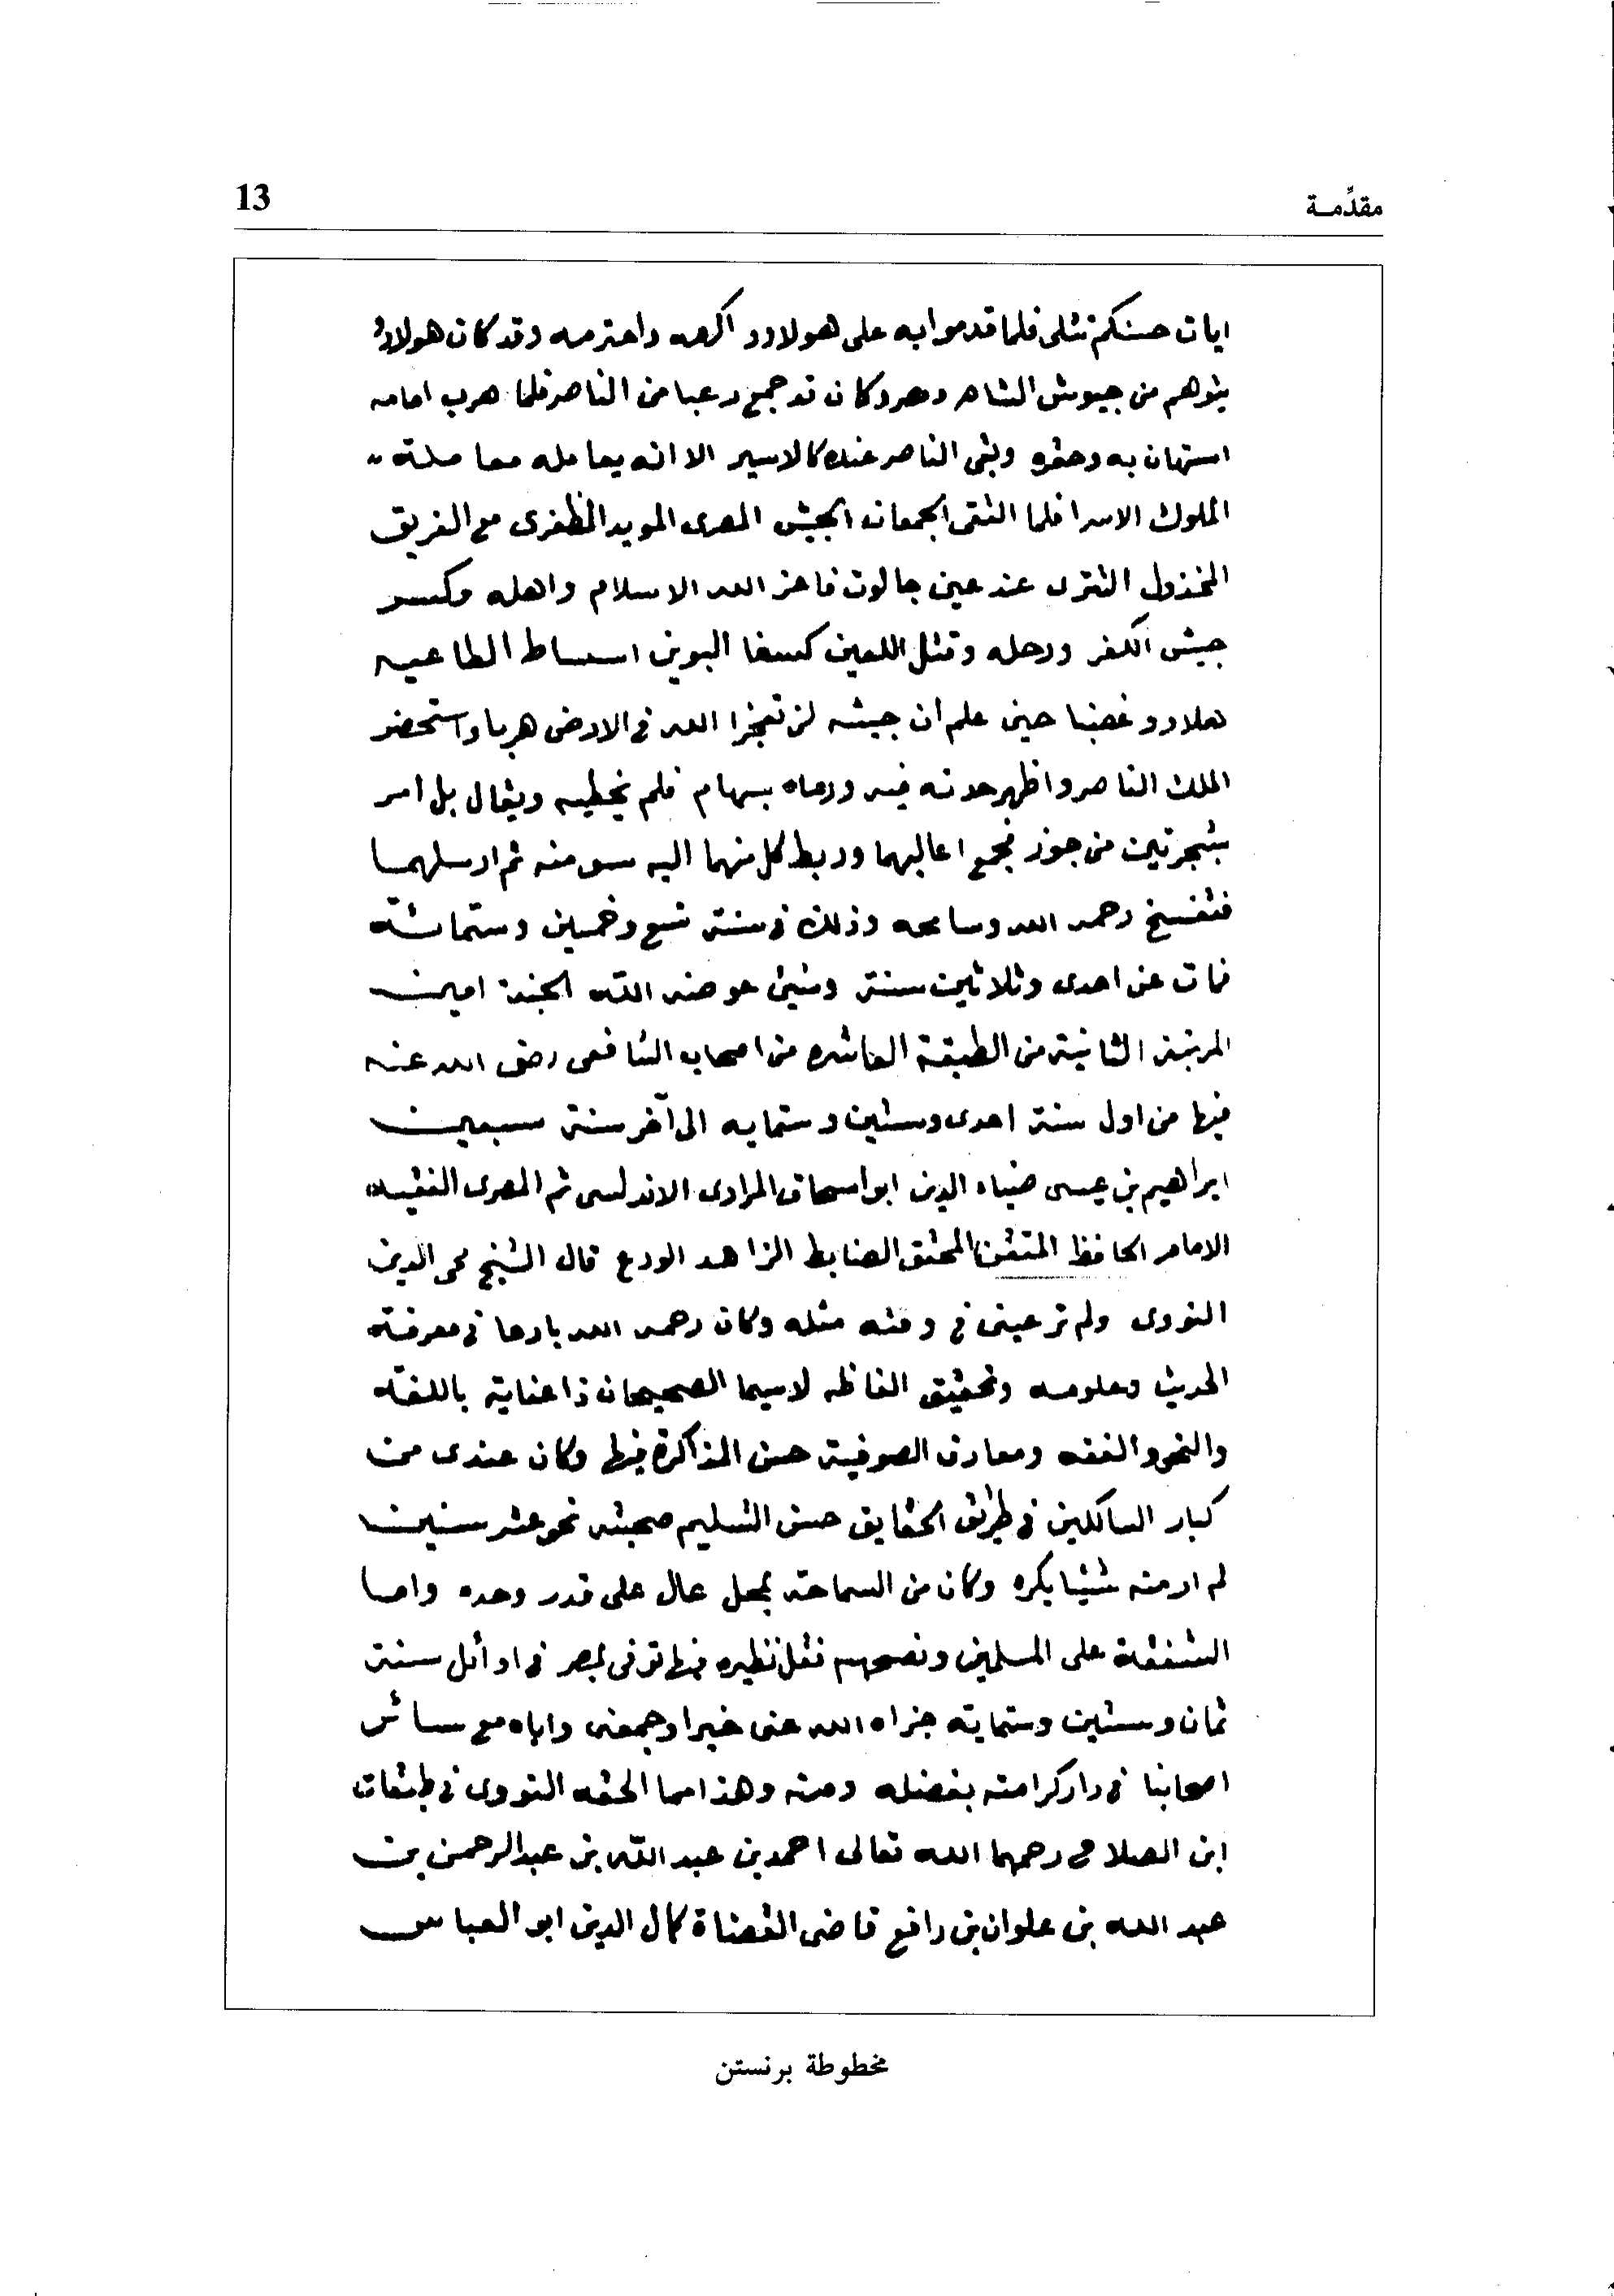 مقدِّمة
13
ايات حسنكم تتلى فلما قدموا به على هولاوو اكرمه واحترمه وقد كان هولاوو
يتوهم من جيوش الشام ومصر وكان قد جمع رعبا من الناصر فلما هرب امامه
استهان به وحقره وبقى الناصر عنده كالاسير الا انه يعامله معاملة
الملوك الاسرا فلما التقى الجمعان الجيش المصرى المويد المظفرى مع الفريق
المخذول التترى عند عين جالوت فاعز الله الاسلام واهله وكسر
جيش الكفر ورحله وقتل اللعين كتبغا البوين استشاط الطاعيه
هلاوو غضبا حين علم ان جيشه لن تعجزا الله فى الارض هربا واستحضر
الملك الناصر واظهر حدته فيه ورماه بسهام فلم يخطيه ويقال بل امر
بشجرتين من جوز فجمع اعاليهما وربط كل منهما اليه سومنه ثم ارسلهما
فتفسخ رحمه الله وسامحه وذلك فى سنة تسع وخمسين وستمائة
فمات عن احدى وثلاثين سنة وشئ عوضه الله الجنة امين
المرتبة الثانية من الطبقة العاشره من اصحاب الشافعى رضى الله عنه
فيها من اول سنة احدى وستين وستمايه الى آخر سنة سبعين
ابراهيم بن عيسى ضياء الدين ابو اسحاق المرادى الاندلسى ثم المصرى الفقيه
الامام الحافظ المتقن المحقق الضابط الزاهد الورع قال الشيخ محى الدين
النووى ولم تر عينى فى وقته مثله وكان رحمه الله بارعا فى معرفة
الحديث وعلومه وتحقيق الفاظه لاسيما الصحيحان ذا عناية باللغة
والنحو والفقه ومعارف الصوفية حسن المذاكرة فيها وكان عندى من
كبار السالكين فى طرائق الحقايق حسن التسليم صحبته نحو عشر سنين
لم ار منه شيئا يكره وكان من السماحة بمحل عال على قدر وجده واما
الشفقة على المسلمين ونصحهم فقل نظيره فيها توفى بمصر فى اوائل سنة
ثمان وستين وستماية جزاه الله عنى خيرا وجمعنى واياه مع سائر
اصحابنا فى دار كرامته بفضله ومنه وهذا مما الحقه النووى فى طبقات
ابن الصلاح رحمهما الله تعالى احمد بن عبد الله بن عبد الرحمن بن
عبد الله بن علوان بن رافع قاضى القضاة كمال الدين ابو العباس
مخطوطة برنستن